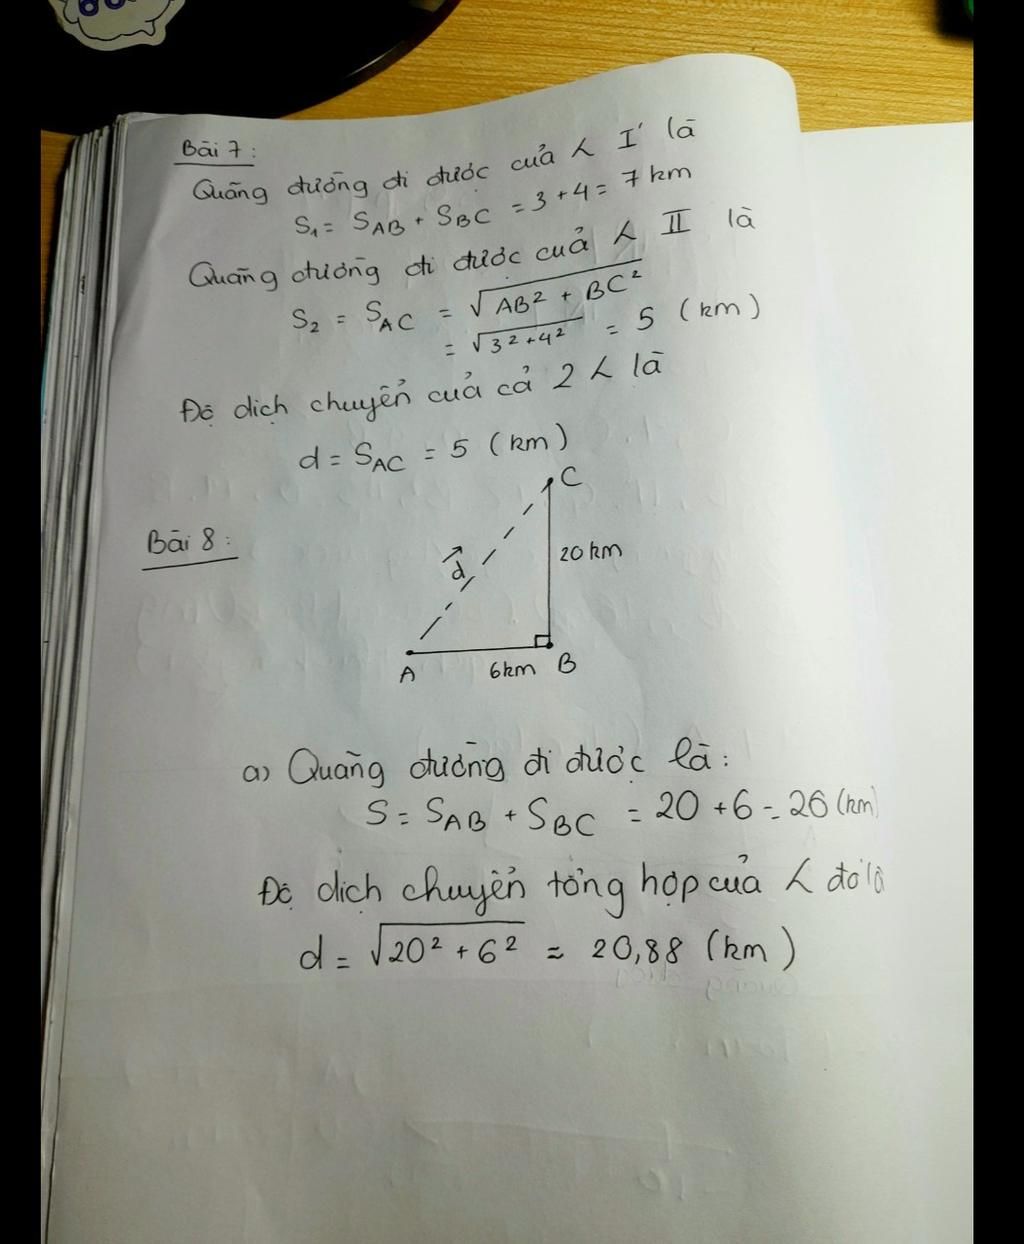 Bài 7:
Quãng đường đi được của λ I là
S₁ = S_AB + S_BC = 3 + 4 = 7 km
Quãng đường đi được của λ II là
S₂ = S_AC = √(AB² + BC²)
= √(3² + 4²) = 5 (km)
Độ dịch chuyển của cả 2 λ là
d = S_AC = 5 (km)
C
Bài 8:
20 km
d⃗
A 6km B
a) Quãng đường đi được là:
S = S_AB + S_BC = 20 + 6 = 26 (km)
Độ dịch chuyển tổng hợp của λ đó là
d = √(20² + 6²) ≈ 20,88 (km)